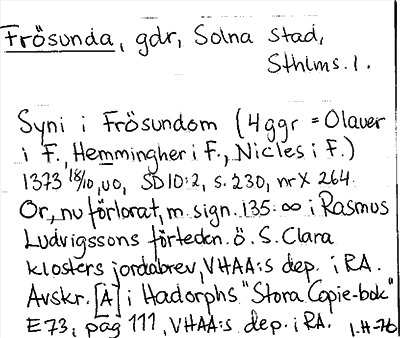 Frösunda, gdr, Solna stad,
Sthlms. l.
Syni i Frösundom (4 ggr = Olauer
i F., Hemmingher i F., Nicles i F.)
1373 18/10, uo, SD 10:2, s. 230, nr X 264.
Or, nu förlorat, m. sign. 135:∞ i Rasmus
Ludvigssons förteckn. ö. S. Clara
klosters jordabrev, VHAA:s dep. i RA.
Avskr. [A] i Hadorphs "Stora Copie-bok"
E 73, pag 111, VHAA:s dep. i RA. l.H-76